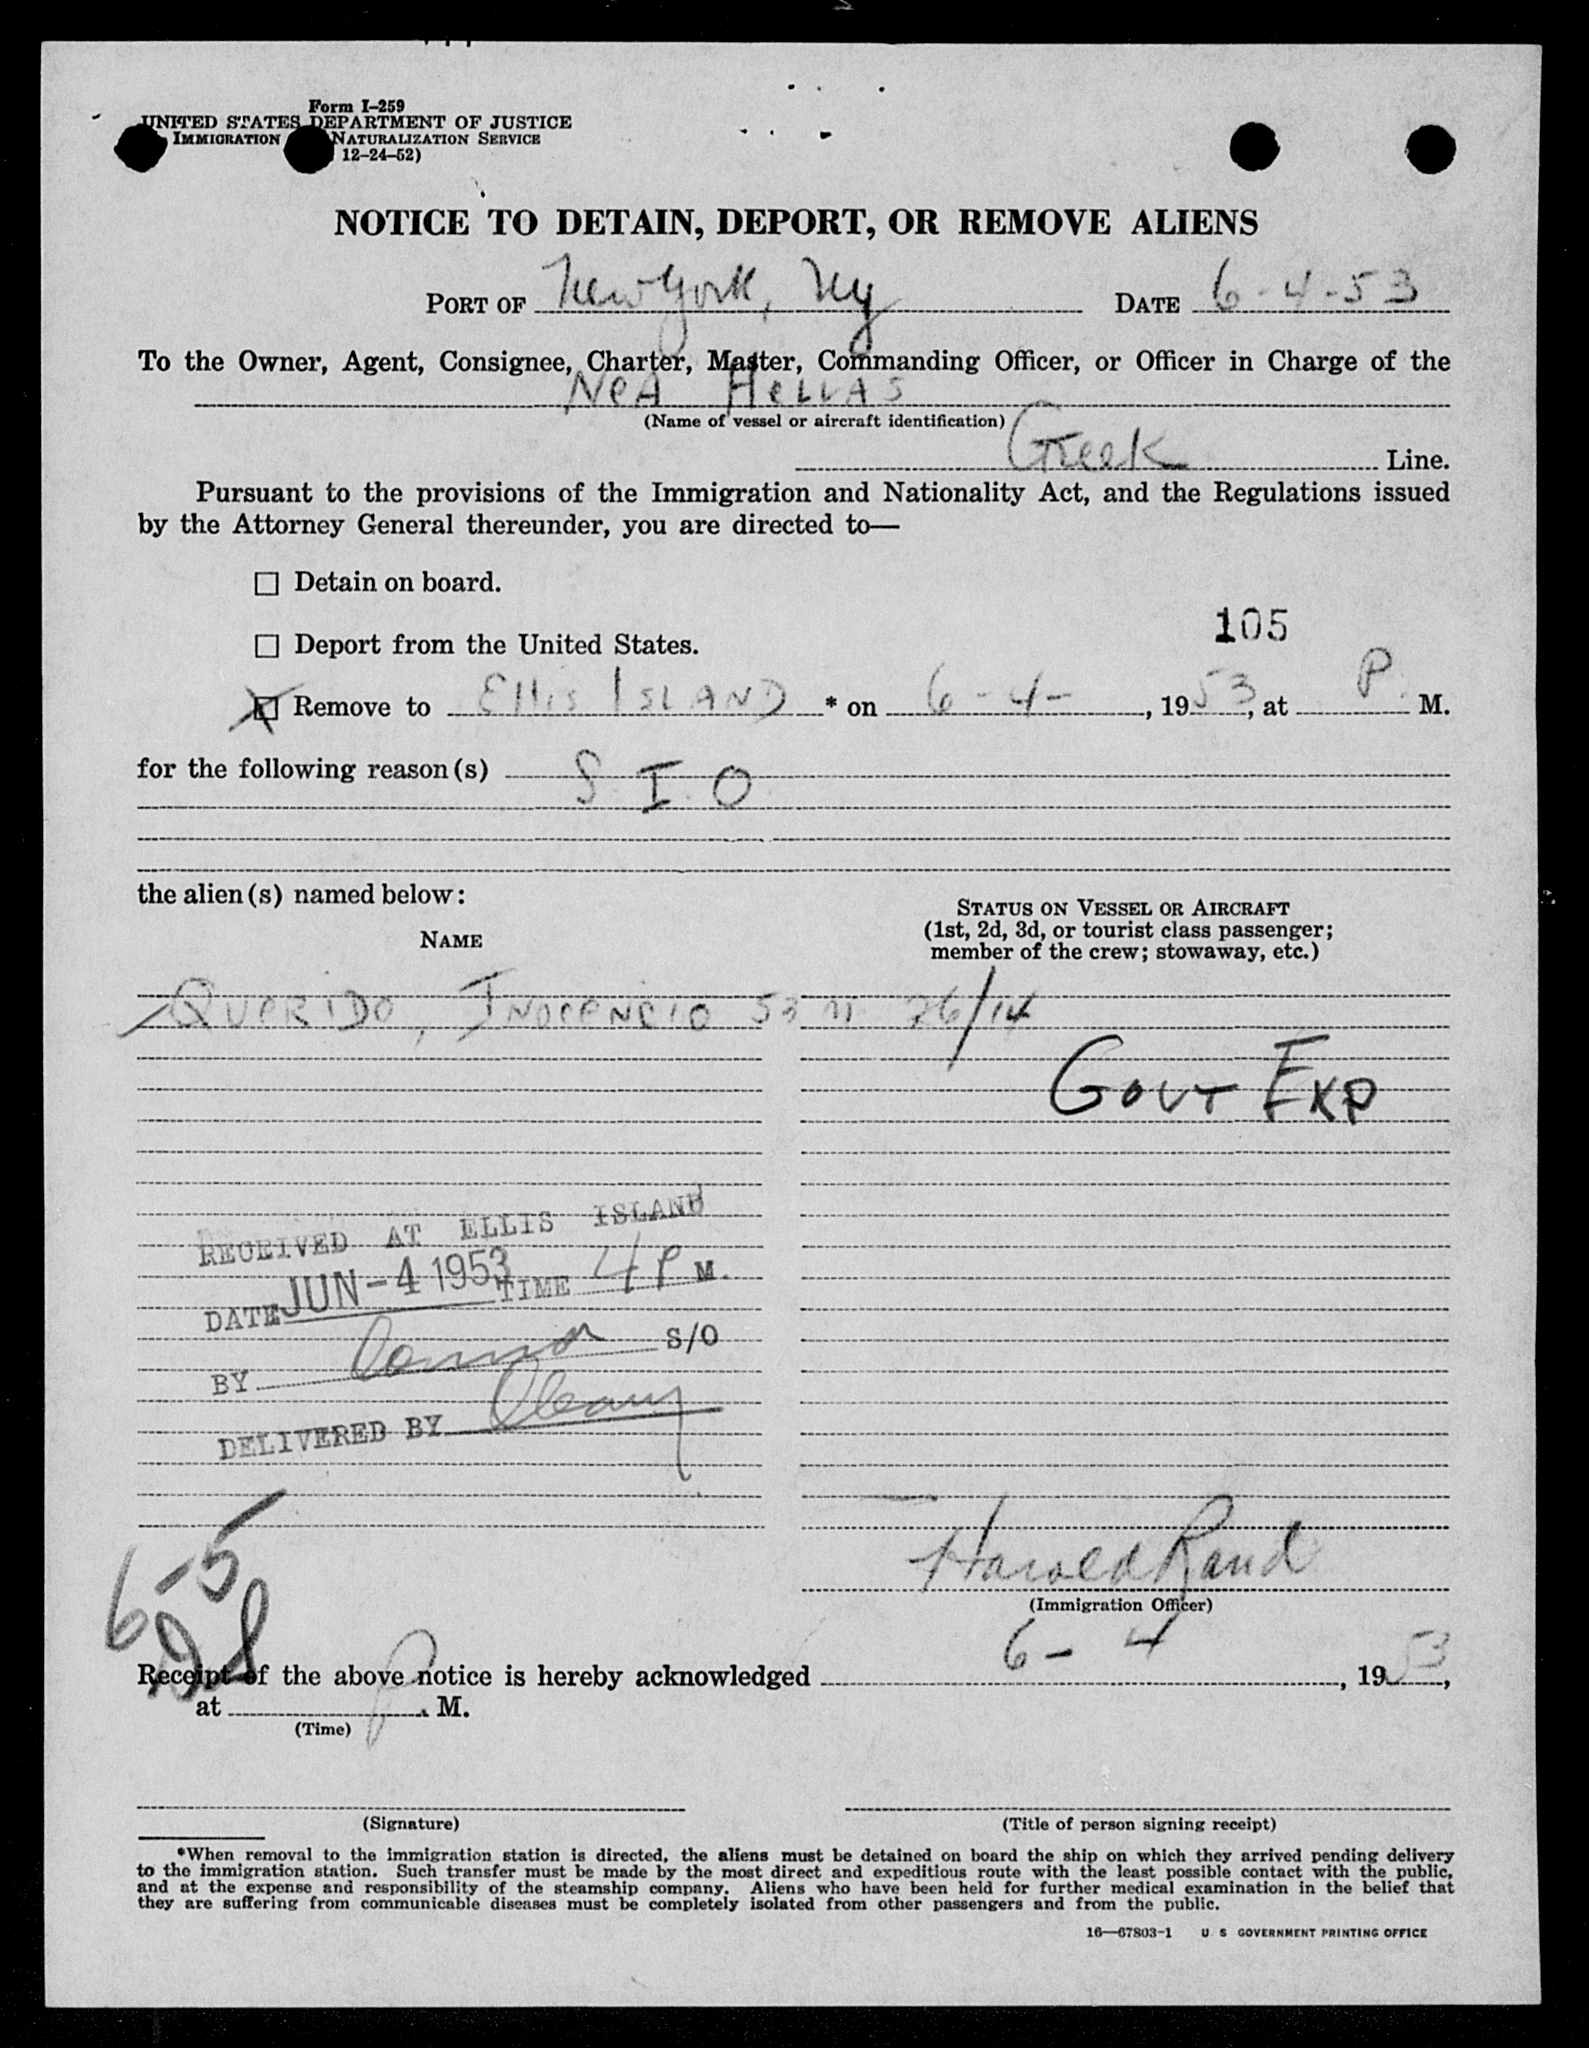 Form I-259
UNITED STATES DEPARTMENT OF JUSTICE
IMMIGRATION NATURALIZATION SERVICE
12-24-52)
NOTICE TO DETAIN, DEPORT, OR REMOVE ALIENS
PORT OF New York, Ny DATE 6-4-53
To the Owner, Agent, Consignee, Charter, Master, Commanding Officer, or Officer in Charge of the
NeA HeLLAS
(Name of vessel or aircraft identification)
Greek Line.
Pursuant to the provisions of the Immigration and Nationality Act, and the Regulations issued
by the Attorney General thereunder, you are directed to—
☐ Detain on board.
105
☐ Deport from the United States.
☒ Remove to Ellis Island * on 6-4-, 1953, at P. M.
for the following reason(s) S. I. O
the alien(s) named below:
NAME
STATUS ON VESSEL OR AIRCRAFT
(1st, 2d, 3d, or tourist class passenger;
member of the crew; stowaway, etc.)
QUERIDO, INOCENCIO 53 m 26/14
GOVT EXP
RECEIVED AT ELLIS ISLAND
DATE JUN-4 1953 TIME 4 P M.
BY S/O
DELIVERED BY
Harold Rand
(Immigration Officer)
6-5
Receipt of the above notice is hereby acknowledged 6-4, 1953,
at P. M.
(Time)
(Signature)
(Title of person signing receipt)
*When removal to the immigration station is directed, the aliens must be detained on board the ship on which they arrived pending delivery
to the immigration station. Such transfer must be made by the most direct and expeditious route with the least possible contact with the public,
and at the expense and responsibility of the steamship company. Aliens who have been held for further medical examination in the belief that
they are suffering from communicable diseases must be completely isolated from other passengers and from the public.
16—67803-1 U. S GOVERNMENT PRINTING OFFICE